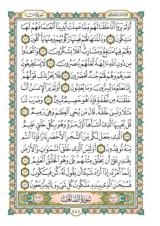 أَوَلَمْ يَرَوْا أَنَّا خَلَقْنَا لَهُم مِّمَّا عَمِلَتْ أَيْدِينَا أَنْعَامًا فَهُمْ لَهَا
مَالِكُونَ وَذَلَّلْنَاهَا لَهُمْ فَمِنْهَا رَكُوبُهُمْ وَمِنْهَا يَأْكُلُونَ
وَلَهُمْ فِيهَا مَنَافِعُ وَمَشَارِبُ أَفَلَا يَشْكُرُونَ وَاتَّخَذُوا
مِن دُونِ اللَّهِ آلِهَةً لَّعَلَّهُمْ يُنصَرُونَ لَا يَسْتَطِيعُونَ
نَصْرَهُمْ وَهُمْ لَهُمْ جُندٌ مُّحْضَرُونَ فَلَا يَحْزُنكَ قَوْلُهُمْ
إِنَّا نَعْلَمُ مَا يُسِرُّونَ وَمَا يُعْلِنُونَ أَوَلَمْ يَرَ الْإِنسَانُ
أَنَّا خَلَقْنَاهُ مِن نُّطْفَةٍ فَإِذَا هُوَ خَصِيمٌ مُّبِينٌ وَضَرَبَ
لَنَا مَثَلًا وَنَسِيَ خَلْقَهُ قَالَ مَن يُحْيِي الْعِظَامَ وَهِيَ رَمِيمٌ
قُلْ يُحْيِيهَا الَّذِي أَنشَأَهَا أَوَّلَ مَرَّةٍ وَهُوَ بِكُلِّ خَلْقٍ عَلِيمٌ
الَّذِي جَعَلَ لَكُم مِّنَ الشَّجَرِ الْأَخْضَرِ نَارًا فَإِذَا أَنتُم
مِّنْهُ تُوقِدُونَ أَوَلَيْسَ الَّذِي خَلَقَ السَّمَاوَاتِ وَالْأَرْضَ
بِقَادِرٍ عَلَىٰ أَن يَخْلُقَ مِثْلَهُم بَلَىٰ وَهُوَ الْخَلَّاقُ الْعَلِيمُ
إِنَّمَا أَمْرُهُ إِذَا أَرَادَ شَيْئًا أَن يَقُولَ لَهُ كُن فَيَكُونُ
فَسُبْحَانَ الَّذِي بِيَدِهِ مَلَكُوتُ كُلِّ شَيْءٍ وَإِلَيْهِ تُرْجَعُونَ
سُورَةُ الصَّافَّاتِ
٤٤٥